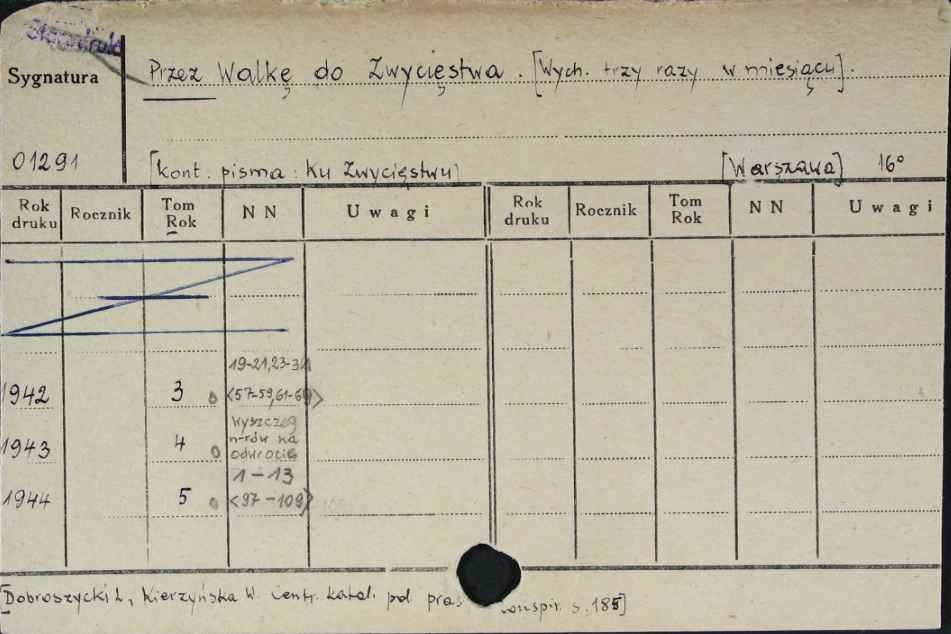 Sygnatura
Przez Walkę do Zwycięstwa. [Wych. trzy razy w miesiącu].
01291
[kont. pisma: Ku Zwycięstwu]
[Warszawa] 16°
Rok druku Rocznik Tom Rok NN Uwagi Rok druku Rocznik Tom Rok NN Uwagi
19-21,23-31
1942 3 <57-59,61-69>
wyszczeg
1943 4 n-rów na
odwrocie
1-13
1944 5 <97-109>
[Dobroszycki L, Kierzyńska W. Centr. katal. pol. pras konspir. s. 185]